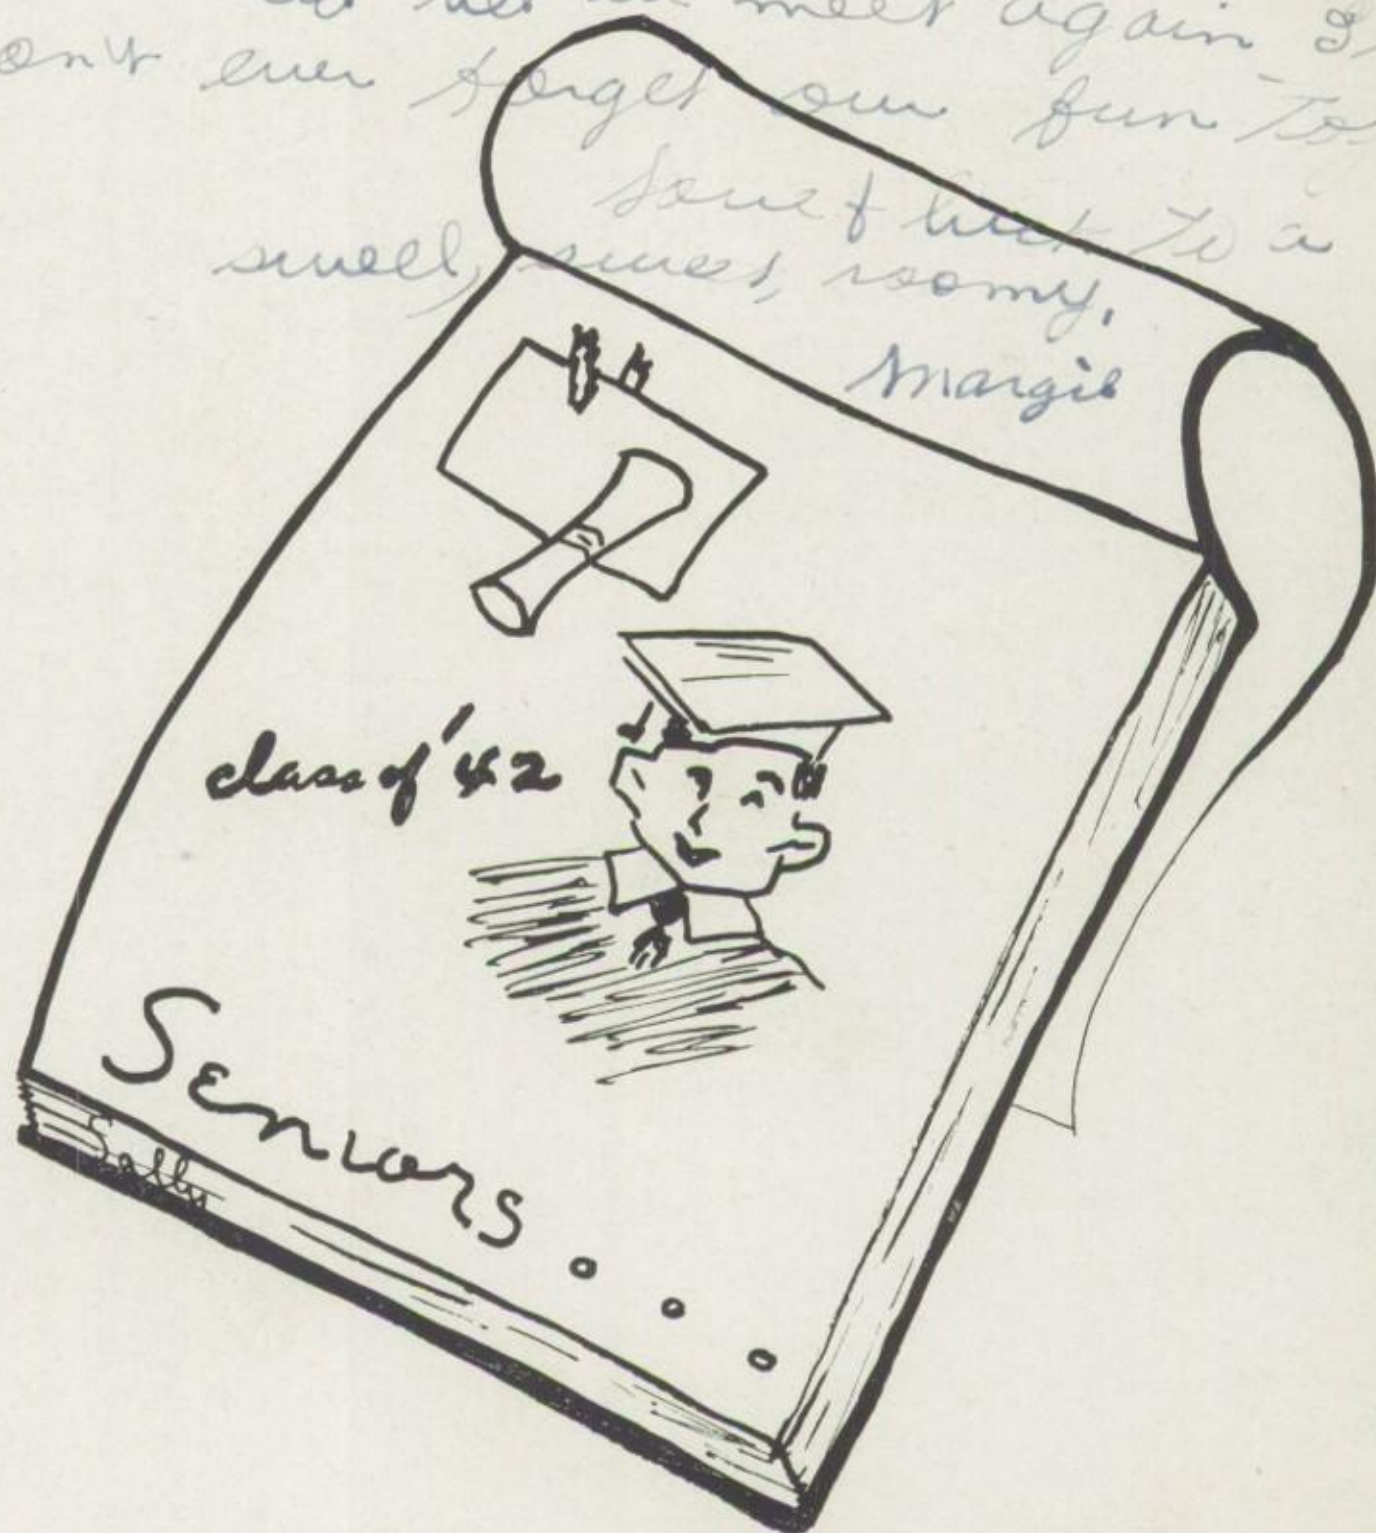 meet again
don't ever forget our fun
Love & luck to a
swell, sweet, roomy,
Margie
class of '42
Seniors...
Sally